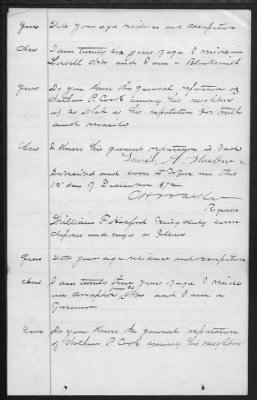 Ques State your age residence and occupation
Ans I am twenty six years of age I reside in
Lowell Ohio and I am a Blacksmith
Ques Do you know the general reputation of
Nathan P. Cook among his neighbors
if so state is his reputation for truth
and veracity
Ans I know his general reputation is bad
David A.
Subscribed and sworn to before me this
18 day of December 1872
William F Hosford being duly sworn
deposes and says as follows
Ques State your age residence and occupation
Ans I am twenty five years of age I reside
in Ohio and I am a
Farmer
Ques Do you know the general reputation
of Nathan P. Cook among his neighbors